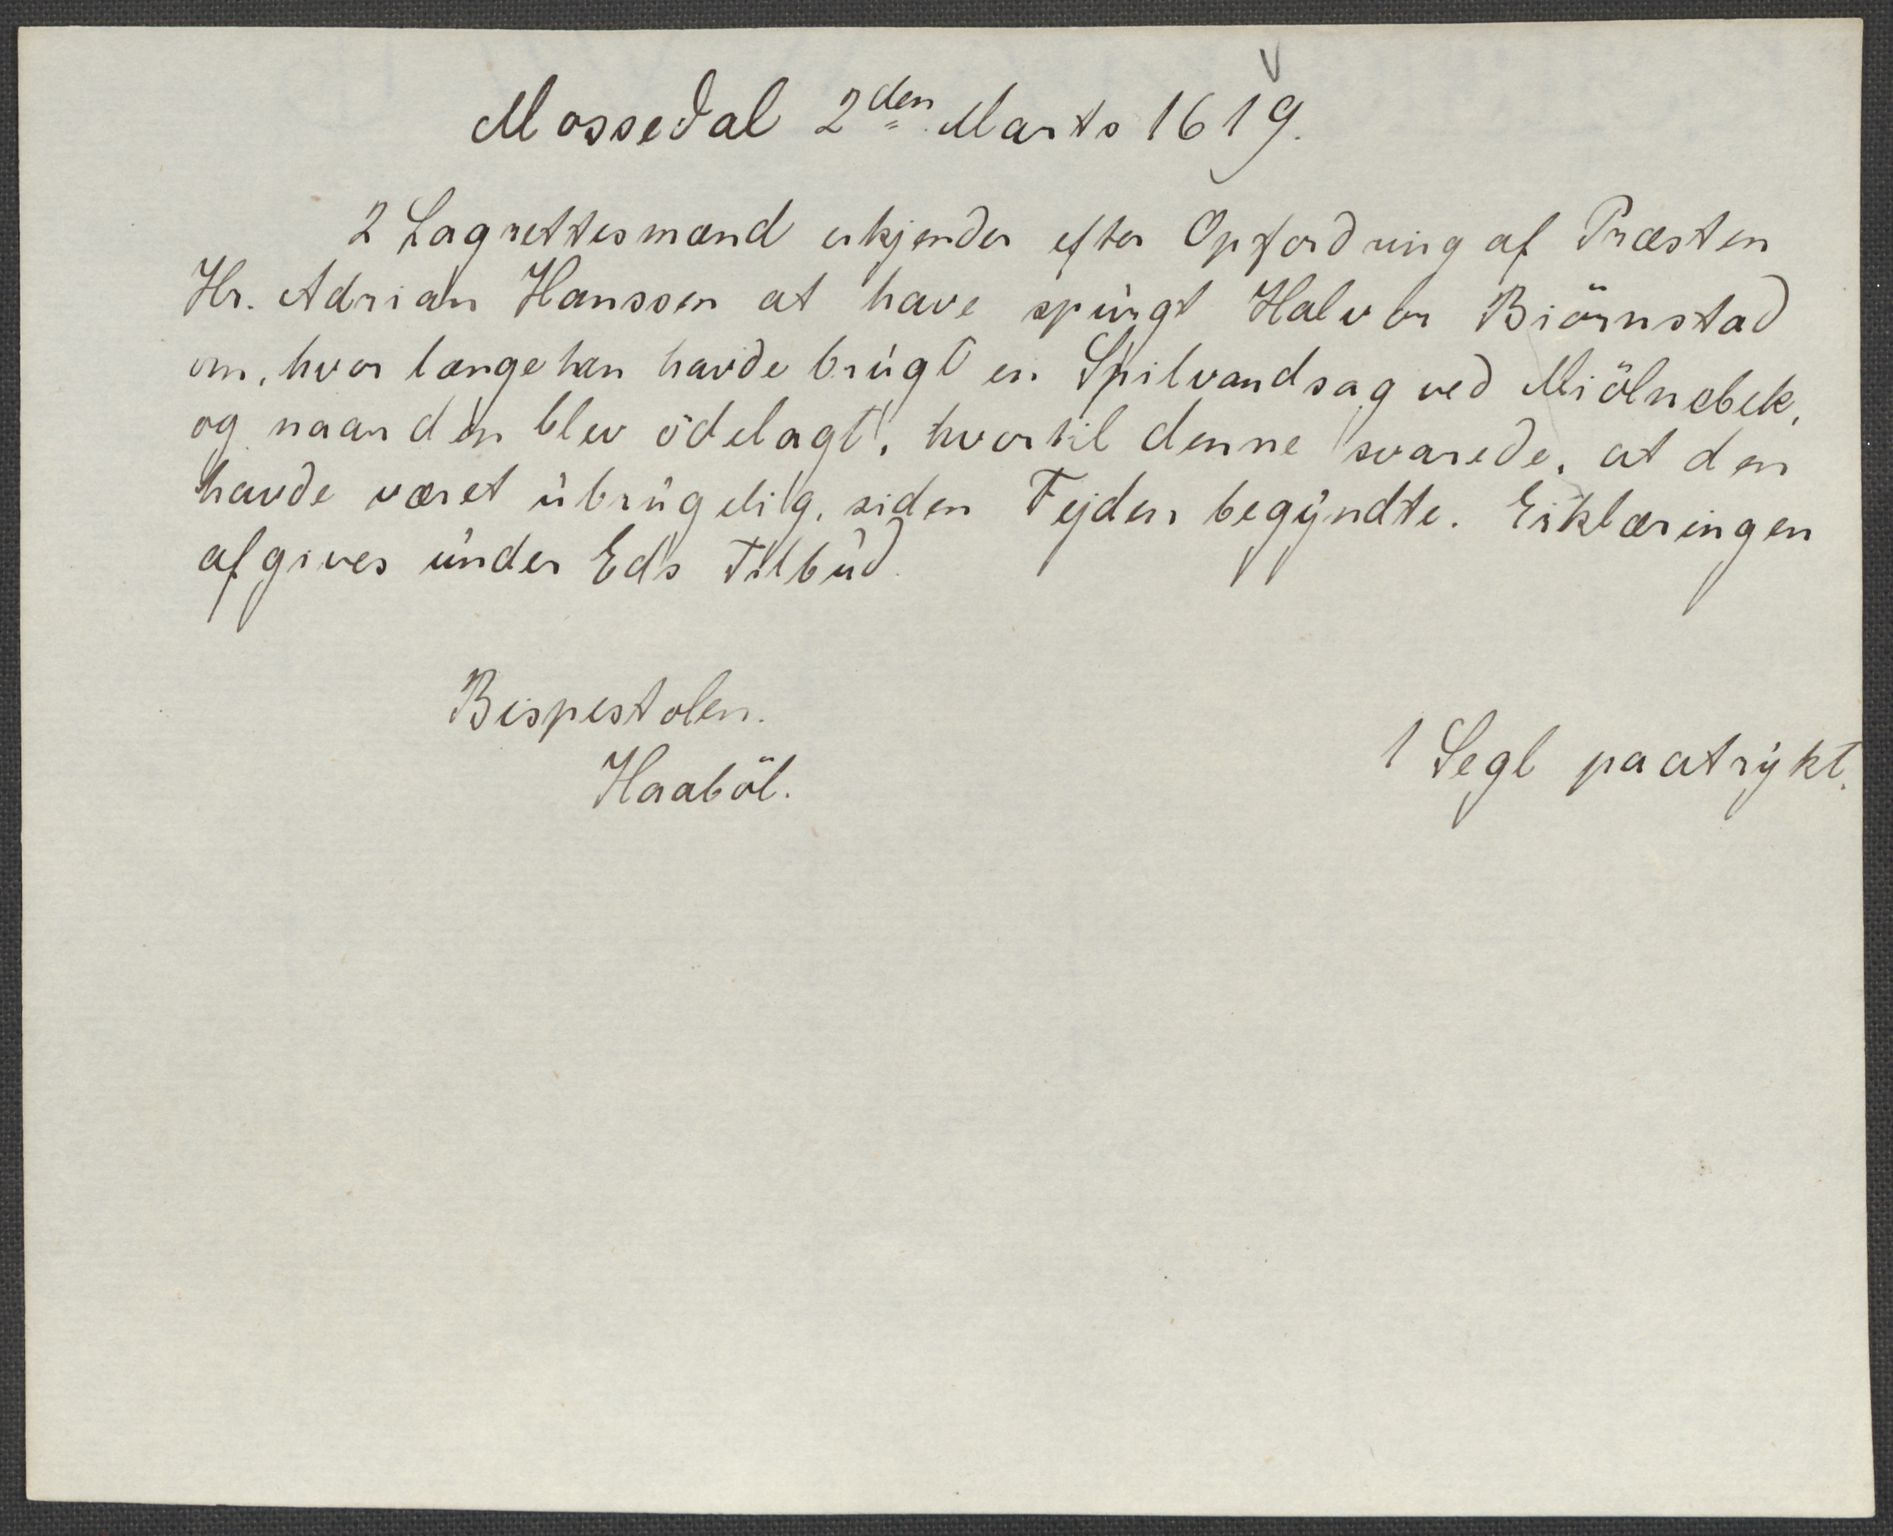 Mossedal 2den Marts 1619.
2 Lagrettesmænd erkjender efter Opfordring af Præsten
Hr. Adrian Hanssen at have spurgt Halvor Biörnstad
om, hvor længe han havde brugt en Spilvandsag ved Miölnebek,
og naar den blev ödelagt, hvortil denne svarede, at den
havde været ubrugelig, siden Fejden begyndte. Erklæringen
afgives under Eds Tilbud.
Bispestolen.
Haaböl.
1 Segl paatrykt.